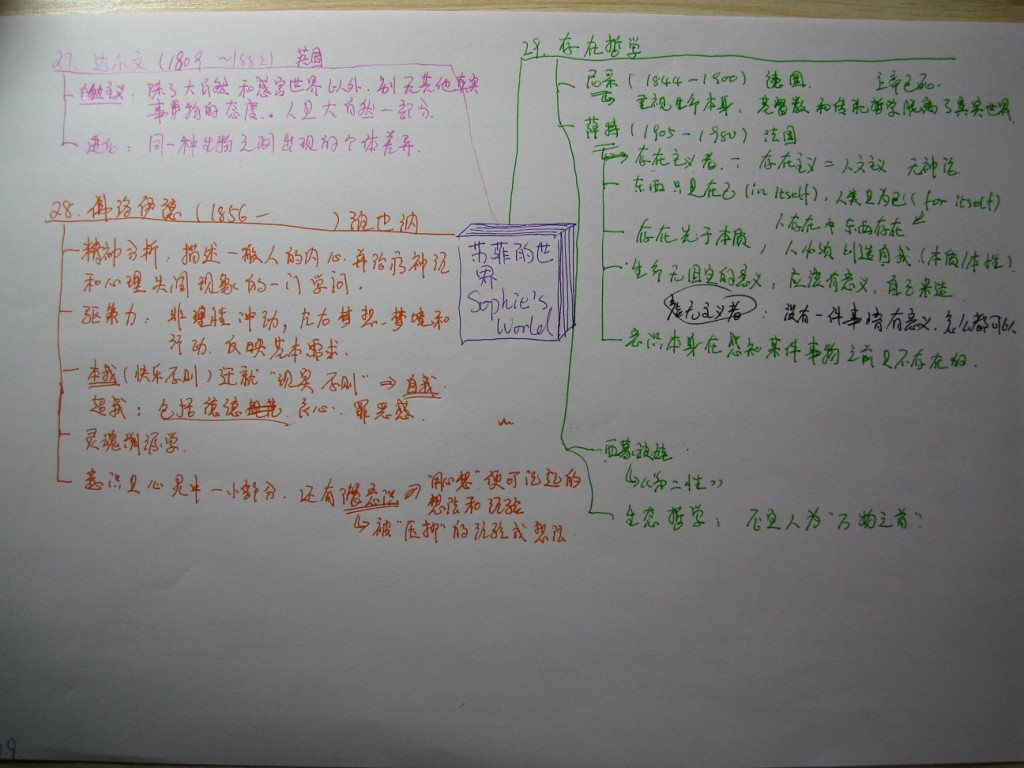 27. 达尔文 (1809 ~1882) 英国
自然主义: 除了大自然和感官世界以外, 别无其他真实
事物的态度。人是大自然一部分
进化: 同一种生物之间出现的个体差异.
28. 佛洛伊德 (1856 - ) 维也纳
精神分析: 描述一般人的内心, 再治疗神经
和心理失调现象的一门学问.
驱策力: 非理性冲动, 左右梦想、梦境和
行动. 反映基本需求.
本我(快乐原则) 迁就 "现实原则" ⇒ 自我
超我: 包括道德 良心. 罪恶感
灵魂溯源学
意识是心灵中一小部分. 还有潜意识 "用心想"便可记起的
想法和经验
↳ 被"压抑"的经验或想法
苏菲的世
界
Sophie's
World
29. 存在哲学
尼采 (1844-1900) 德国 上帝已死
重视生命本身. 基督教和传统哲学脱离了真实世界
萨特 (1905-1980) 法国
存在主义者. 存在主义 = 人文主义 无神论
东西只是在己 (in itself), 人类是为己 (for itself)
人存在 东西存在
存在先于本质, 人必须创造自我 (本质/本性).
生命无固定的意义, 应该有意义, 自己来造
虚无主义者: 没有一件事情有意义. 怎么都可以
意识本身在感知某件事物之前是不存在的.
西蒙波娃
↳《第二性》
生态哲学: 否定人为"万物之首"
09